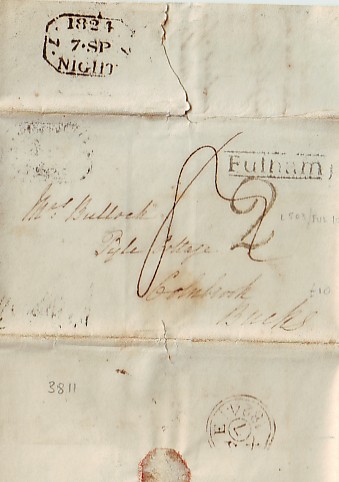 1824
7·SP
NIGHT
Fulham
2
Mrs Bullock
Pyle Cottage
Colnbrook
Bucks
3811